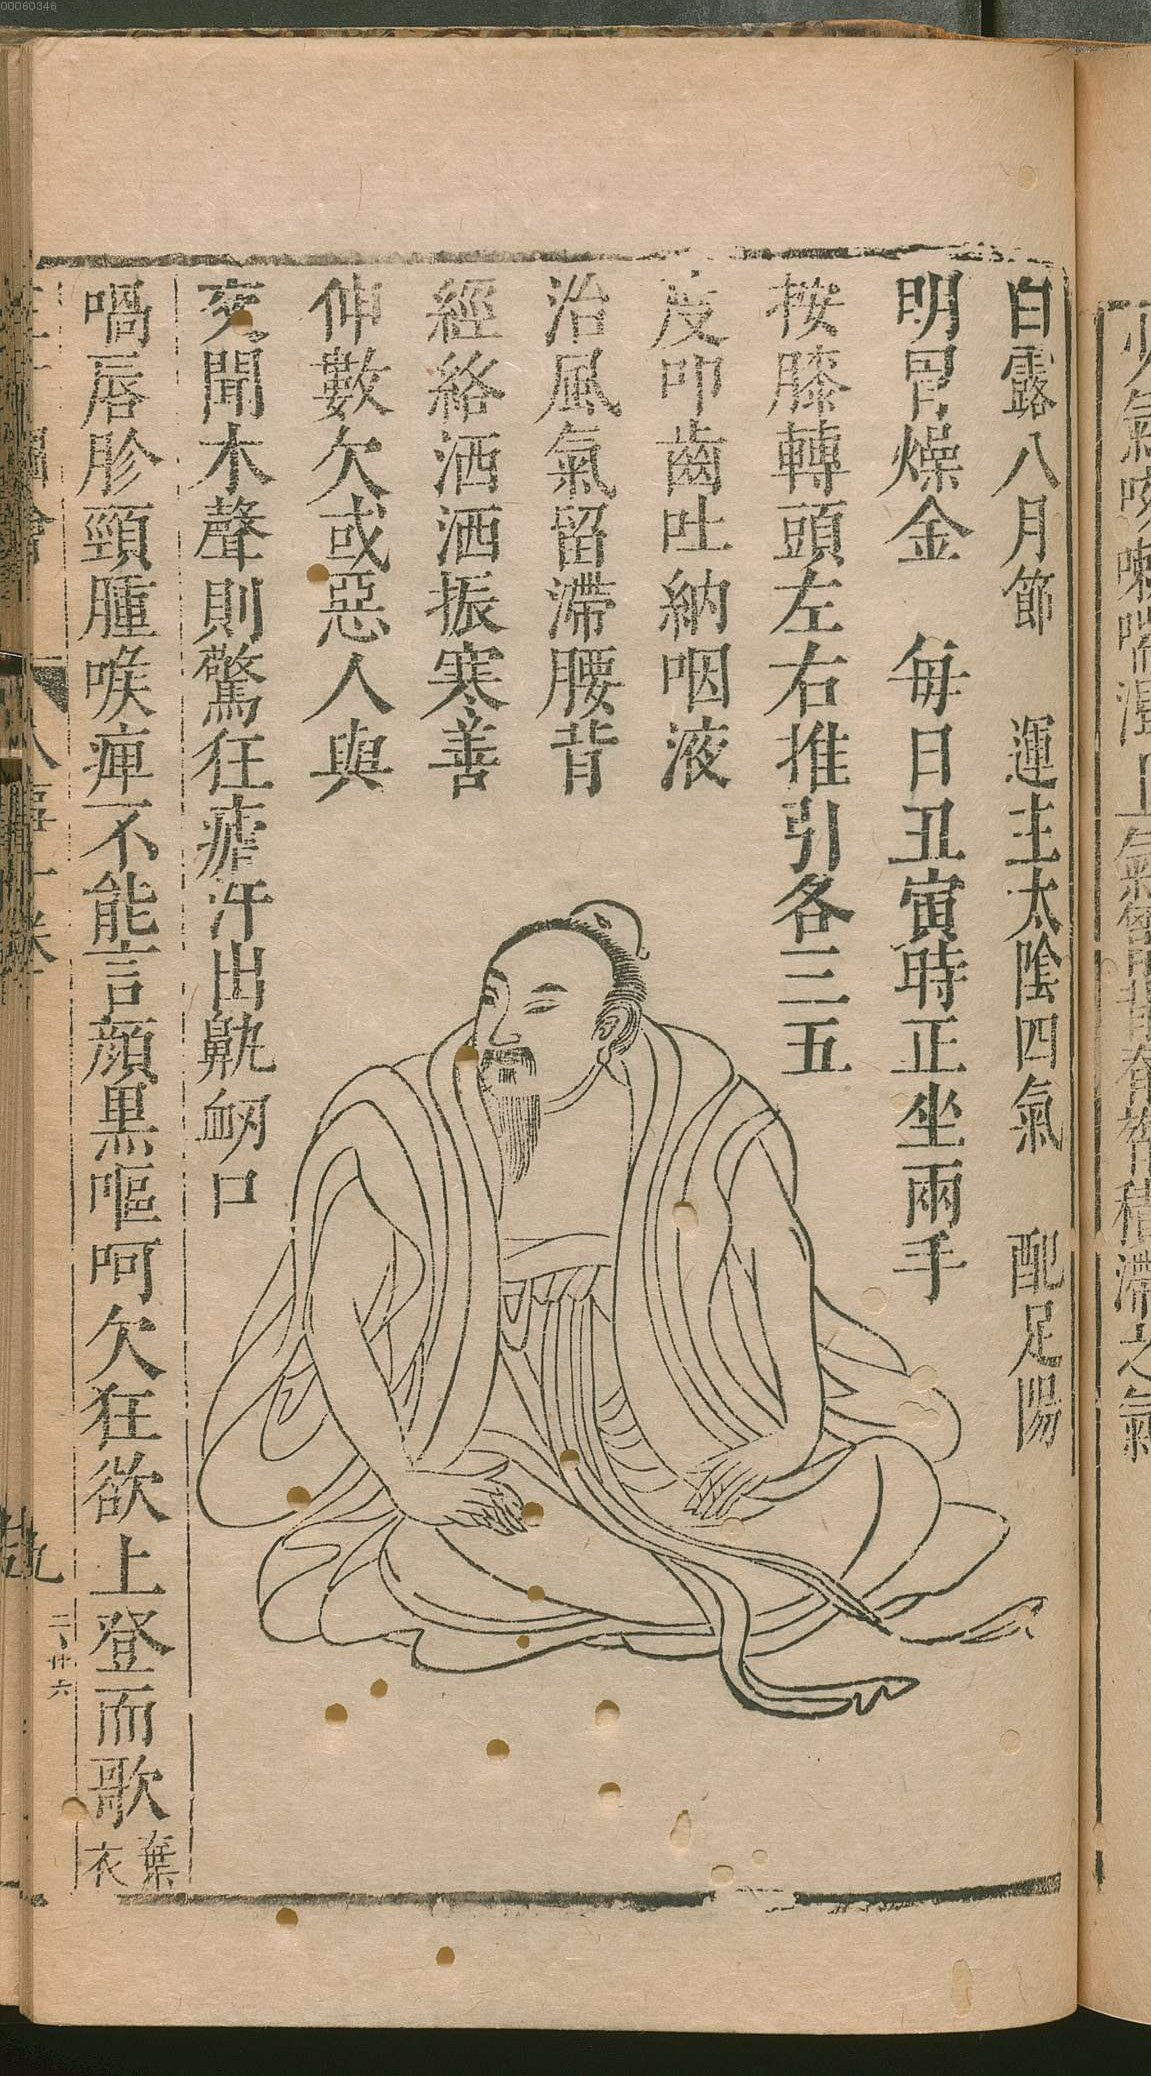 白露八月節　運主太陰四氣　配足陽
明胃燥金　每日丑寅時正坐兩手
按膝轉頭左右推引各三五
度叩齒吐納咽液
治風氣留滯腰背
經絡洒洒振寒善
伸數欠或惡人與
火聞木聲則驚狂瘧汗出鼽衂口
喎唇胗頸腫喉痺不能言顏黑嘔呵欠狂欲上登而歌棄
衣
二ノ廿六
00060346